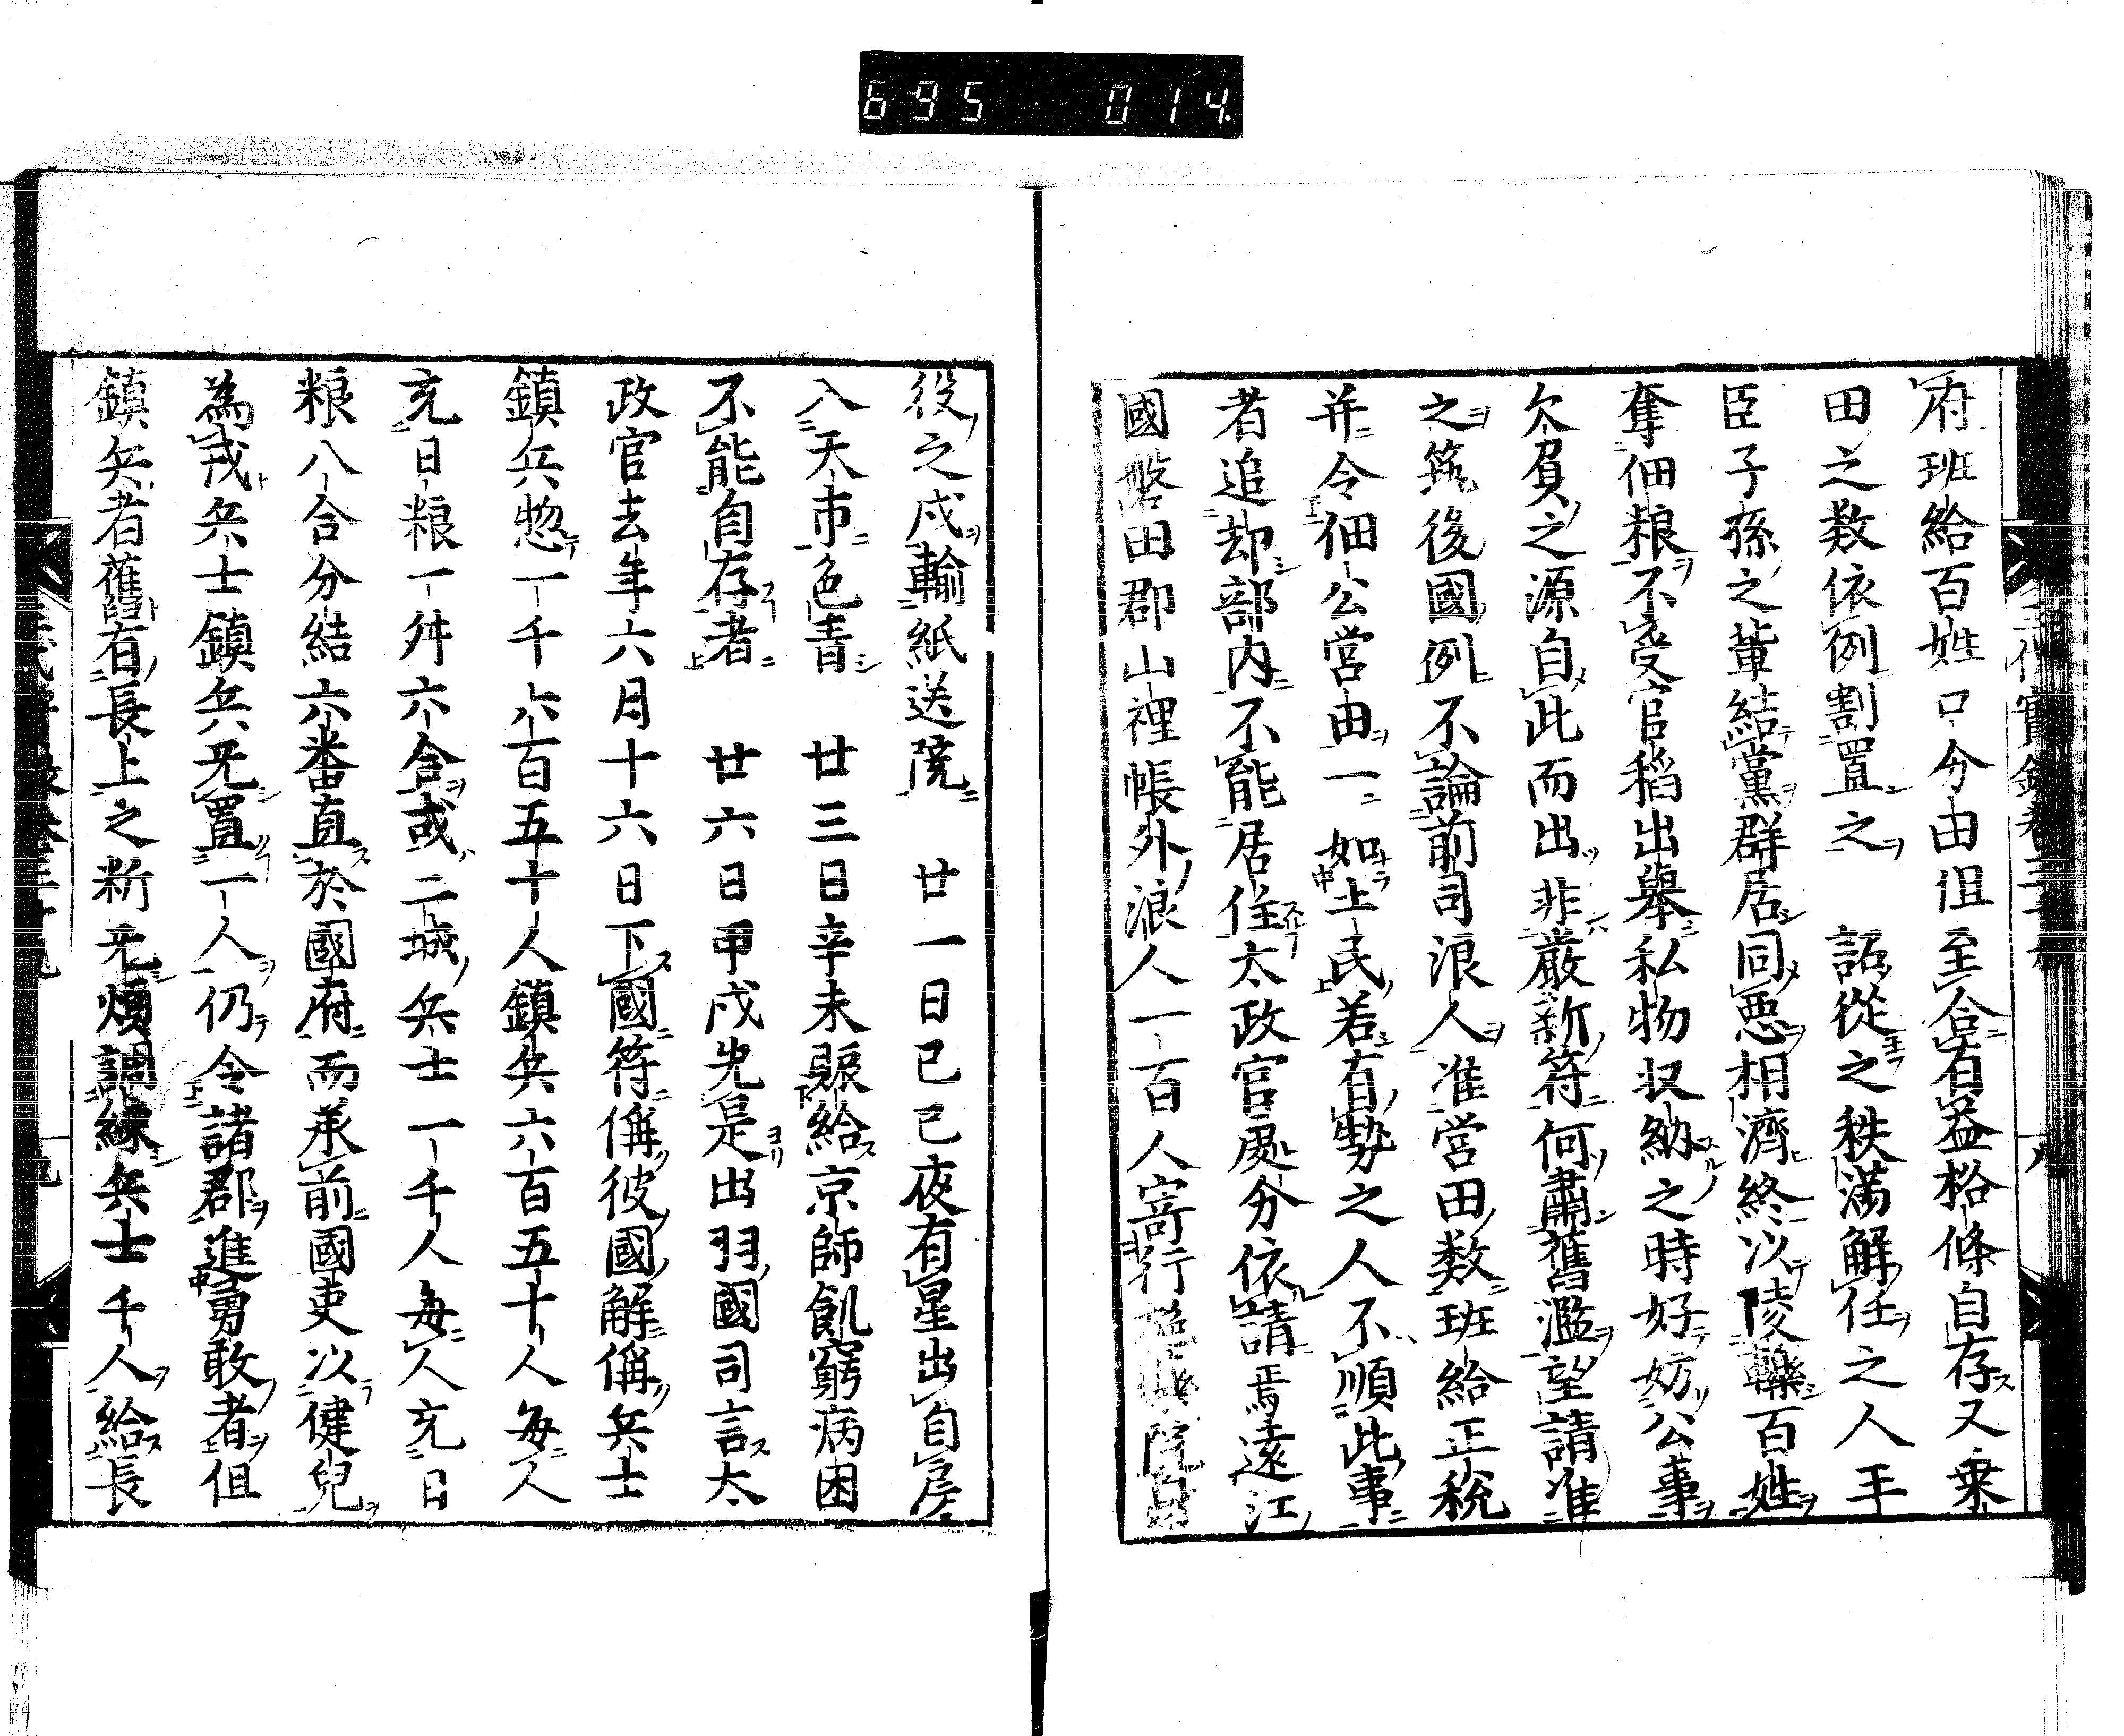 695 014
府班給百姓口分由但至合有益格條自存又乗
田之数依例割置之 詔從之秩満解任之人王
臣子孫之輩結黨群居同悪相濟終以陵轢百姓
奪佃粮不受官稻出舉私物収納之時好妨公事
欠負之源自此而出非嚴新符何肅舊濫望請准
之筑後國例不論前司浪人准営田数班給正税
并令佃公営由一如土民若有勢之人不順此事
者追却部内不能居住太政官處分依請焉遠江
國磐田郡山裡帳外浪人一百人寄行 院
役之戍輸紙送院 廿一日己巳夜有星出自房
入天市色青 廿三日辛未賑給京師飢窮病困
不能自存者 廿六日甲戌先是出羽國司言太
政官去年六月十六日下國符偁彼國解偁兵士
鎮兵惣一千六百五十人鎮兵六百五十人毎人
充日粮一舛六合或二城兵士一千人毎人充日
粮八合分結六番直於國府而承前國吏以健兒
為戎兵士鎮兵无置一人仍令諸郡進勇敢者但
鎮兵者舊有長上之新无煩調練兵士千人給長